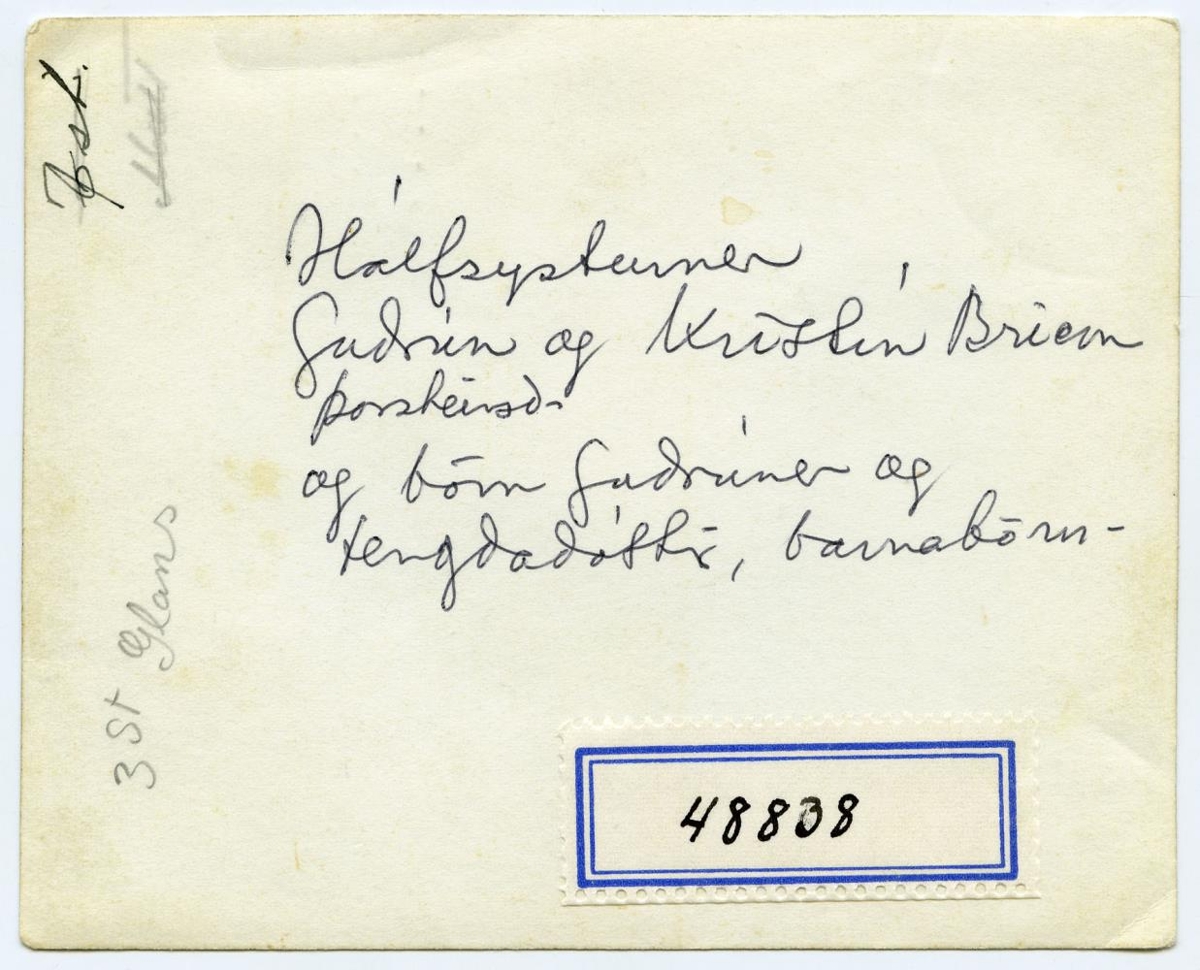 Hálfsysturner
Gudrún og Kristín Briem
þorsteinsd-
og börn Gudrúner og
tengdadóttir, barnabörn-
3 St Glans
48838